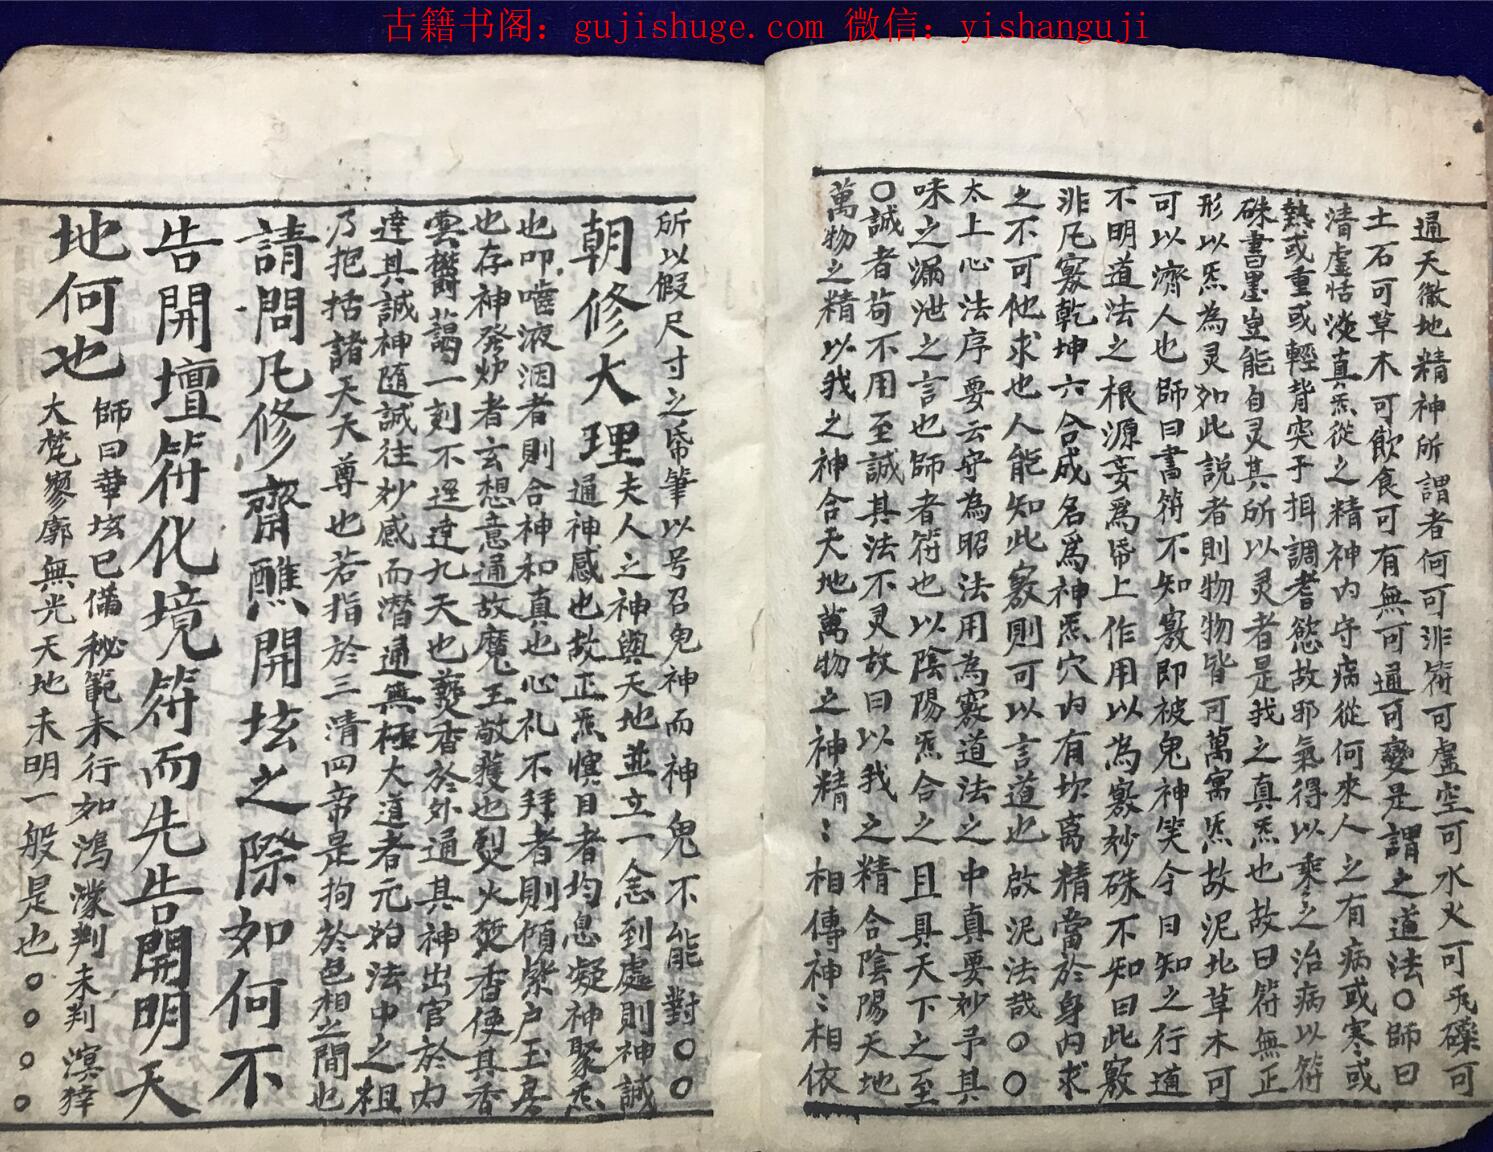 古籍书阁：gujishuge.com 微信：yishanguji
通天徹地精神所謂者何可非符可虚空可水火可瓦礫可
土石可草木可飲食可有無可通可變是謂之道法〇師曰
清虚恬淡真炁從之精神内守病從何來人之有病或寒或
熱或重或輕背突于損調耆慾故邪氣得以乘之治病以符
硃書墨豈能自灵其所以灵者是我之真炁也故曰符無正
形以炁為灵如此説者則物物皆可萬寓炁故泥北草木可
可以濟人也師曰書符不知竅即被鬼神笑今日知之行道
不明道法之根源妄爲帋上作用以為竅妙硃不知曰此竅
非凡竅乾坤六合成名爲神炁穴内有坎离精當於身内求
之不可他求也人能知此竅則可以言道也啟泥法哉〇〇
太上心法序要云守為昭法用為竅道法之中真要妙予其
味之漏泄之言也師者符也以陰陽炁合之且具天下之至
〇誠者苟不用至誠其法不灵故曰以我之精合陰陽天地
萬物之精以我之神合天地萬物之神精：相傳神：相依
所以假尺寸之帋筆以号召鬼神而神鬼不能對〇〇
朝修大理夫人之神與天地並立一念到處則神誠
通神感也故正炁慎目者均息凝神聚炁
也叩嚙液泗者則合神和真也心礼不拜者則傾紫户玉房
也存神發炉者玄想意通故魔王敬護也烈火焚香使其香
雲欝藹一刻不逕達九天也爇香於外通其神出官於内
達其誠神随誠往妙感而潜通無極大道者元始法中之祖
乃抱括諸天天尊也若指於三清四帝是拘於色相之間也
請問凡修齋醮開坛之際如何不
告開壇符化境符而先告開明天
地何也
師曰華坛已僃秘範未行如鴻濛判未判溟涬
大梵寥廓無光天地未明一般是也〇〇〇〇